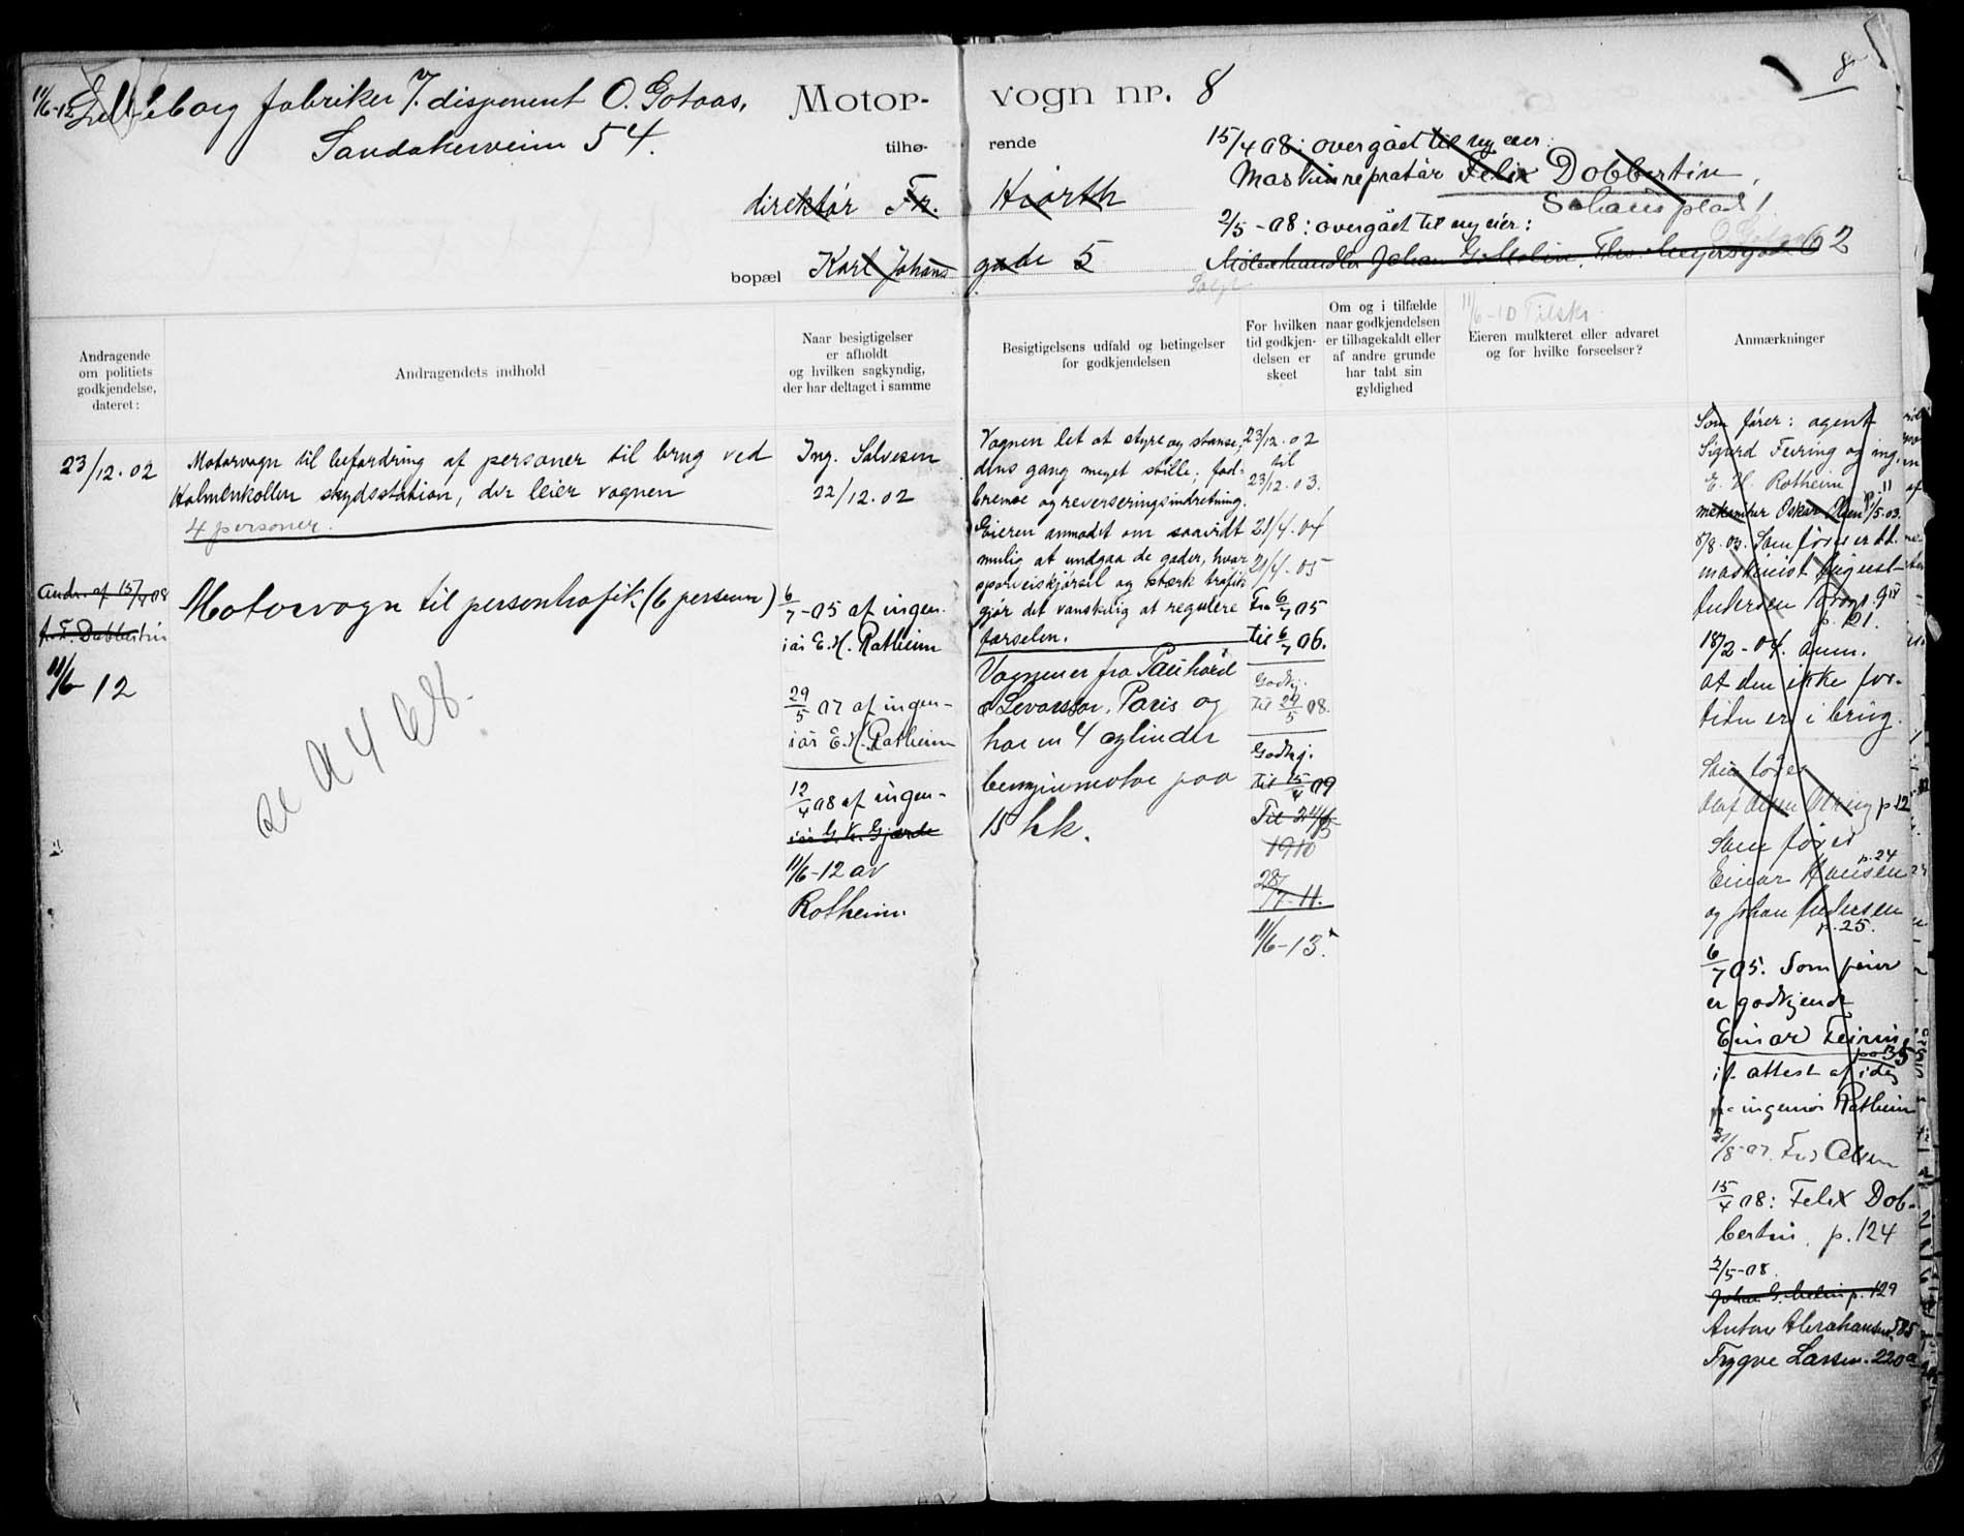 11/6-12 Lilleborg fabriker v/. disponent O. Gotaas,
Sandakerveien 54.
Motor-vogn nr. 8
8
tilhø-rende
direktør Fr. Hiorth
bopæl Karl Johans gade 5
15/4 08: overgået til ny eier:
Maskinrepratør Felix Dobbertin,
Schous plads 1
2/5-08: overgået til ny eier:
Johan G. Melin, Thv. Meyersgade 62
Solgt
11/6-10 Tilskr.
Andragende
om politiets
godkjendelse,
dateret:
Andragendets indhold
Naar besigtigelser
er afholdt
og hvilken sagkyndig,
der har deltaget i samme
Besigtigelsens udfald og betingelser
for godkjendelsen
For hvilken
tid godkjen-
delsen er
skeet
Om og i tilfælde
naar godkjendelsen
er tilbagekaldt eller
af andre grunde
har tabt sin
gyldighed
Eieren mulkteret eller advaret
og for hvilke forseelser?
Anmærkninger
23/12.02
Andr. af 15/4 08
fr. F. Dobbertin
11/6 12
Motorvogn til befordring af personer til brug ved
Holmenkollen skydsstation, der leier vognen
4 personer.
Motorvogn til persontrafik. (6 personer)
A 468.
Ing. Salvesen
22/12.02
6/7-05 af ingen-
iør E. H. Rotheim
29/5 07 af ingen-
iør E. H. Rotheim
12/4 08 af ingen-
iør G. K. Gjærde
11/6-12 av
Rotheim.
Vognen let at styre og stanse,
dens gang meget stille; fod-
bremse og reverseringsindretning.
Eieren anmodet om saavidt
mulig at undgaa de gader, hvor
sporveiskjørsel og stærk trafik
gjør det vanskelig at regulere
færselen.
Vognen er fra Panhard
& Levassor, Paris og
har en 4 cylinder
benzinmotor paa
15 hk.
23/12.02
til
23/12.03.
21/4-04
21/4-05
Fra 6/7 05
til 6/7 06.
Godkj.
til 29/5 08.
Godkj.
til 15/4 09
1910
28/7-11.
11/6-13.
Som fører: agent
Sigurd Feiring og ing.
E. H. Rotheim
Oskar Olsen 1/5.03.
8/8.03. Som fører er
maskinist August
Andersen
p. 121.
18/2-04. anm.
at den ikke for-
tiden er i brug.
Som fører
Olaf Olsen p 12
Som fører
Einar Hansen p.24
og Johan Andersen
p. 25.
6/7 05. Som fører
er godkjendt
Einar Feiring
pag 35
if. attest af idag
fr ingeniør Rotheim
Olsen
15/4 08: Felix Dob-
bertin. p. 124
2/5-08.
Johan G. Melin p. 129
Anton Abrahamsen 585
Trygve Larsen. 220